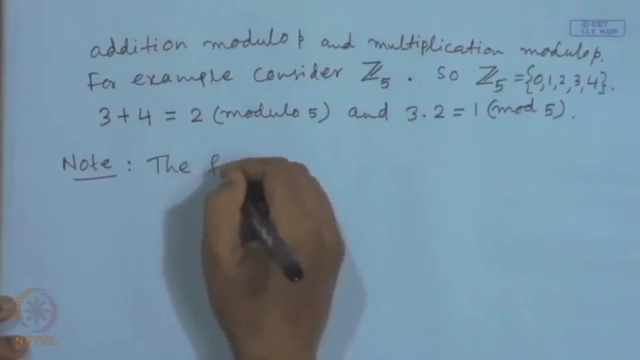 © CET
I.I.T. KGP
addition modulo p and multiplication modulo p.
For example consider ℤ₅. So ℤ₅ = {0,1,2,3,4}.
3+4 = 2 (modulo 5) and 3.2 = 1 (mod 5).
Note : The f
NPTEL